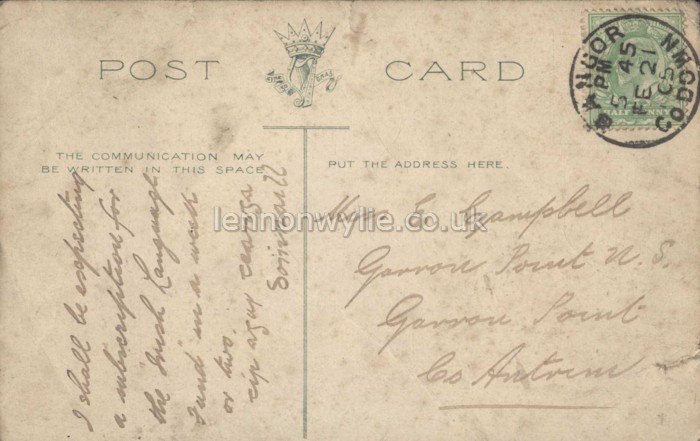 POST CARD
BANGOR
5 45 PM
FE 21
05
CO DOWN
HALF PENNY
THE COMMUNICATION MAY
BE WRITTEN IN THIS SPACE
PUT THE ADDRESS HERE.
lennonwylie.co.uk
I shall be expecting
a subscription for
the Irish Language
Fund in a week
or two.
Miss E Campbell
Garron Point N.S.
Garron Point
Co Antrim